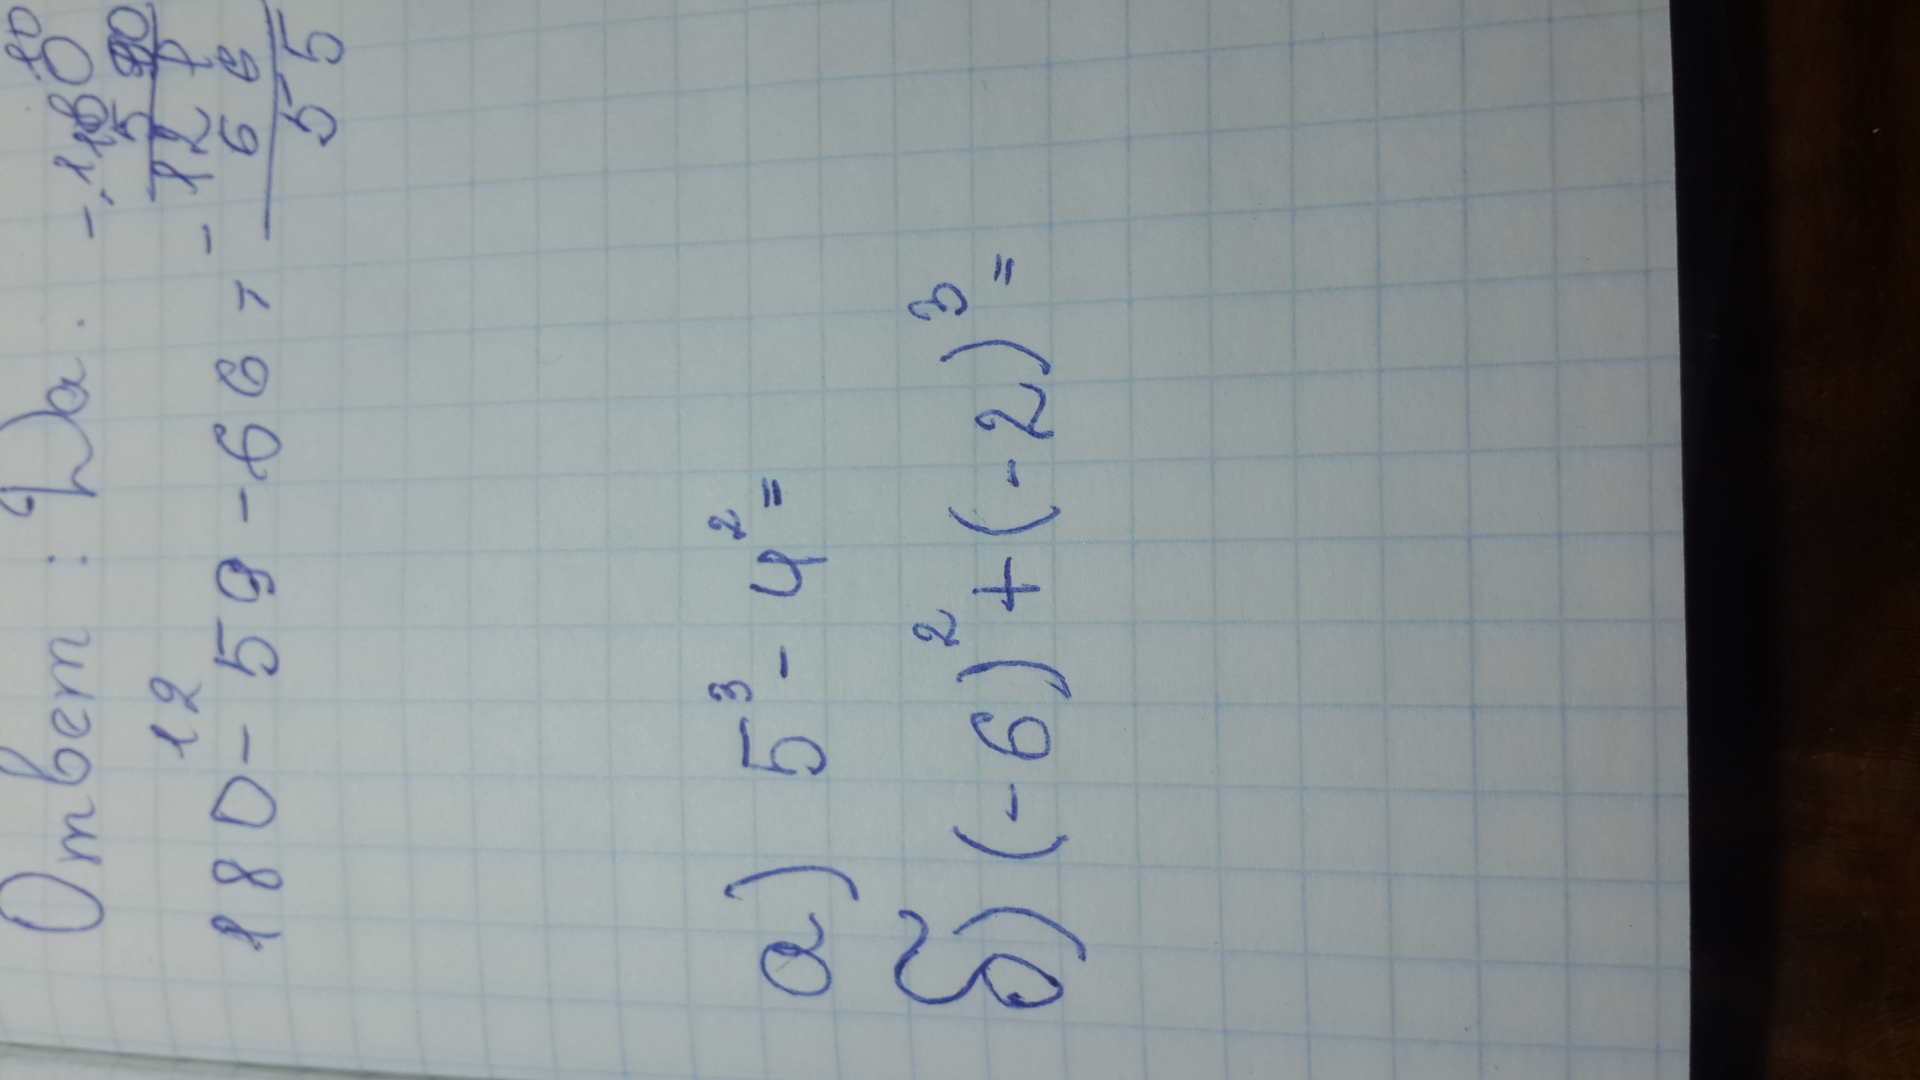 Ответ : Да.
12
180 - 59 - 66 =
- 121
66
55
а) 5³ - 4² =
б) (-6)² + (-2)³ =